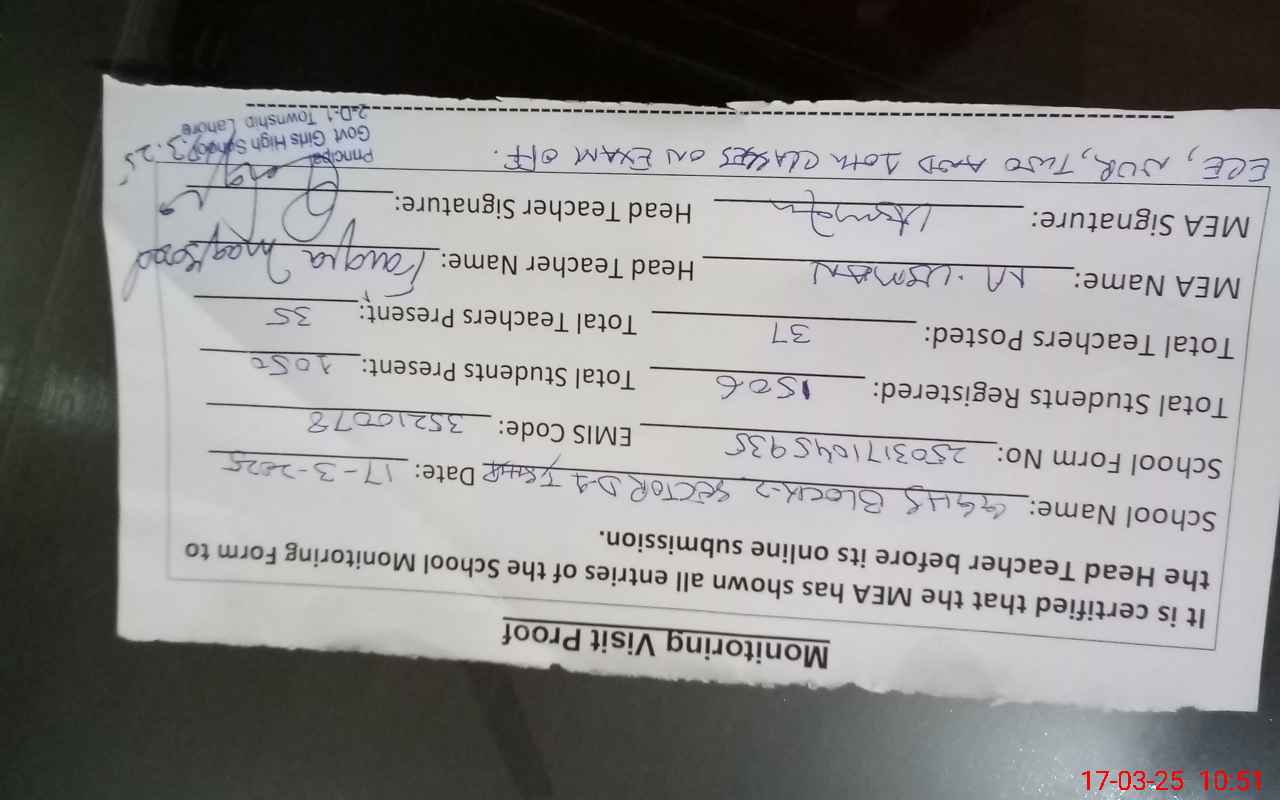 Monitoring Visit Proof
It is certified that the MEA has shown all entries of the School Monitoring Form to
the Head Teacher before its online submission.
School Name: GGHS BLOCK-2 SECTOR D-1 T.SHIP Date: 17-3-2025
School Form No: 2503171045935 EMIS Code: 35210078
Total Students Registered: 1506 Total Students Present: 1050
Total Teachers Posted: 37 Total Teachers Present: 35
MEA Name: M. USMAN Head Teacher Name: Faiqa Maqsood
MEA Signature: Usman Head Teacher Signature:
ECE, NUR, TWO AND 10TH CLASSES ON EXAM OFF.
Principal
Govt Girls High School
2-D-1 Township Lahore
17-03-25 10:51